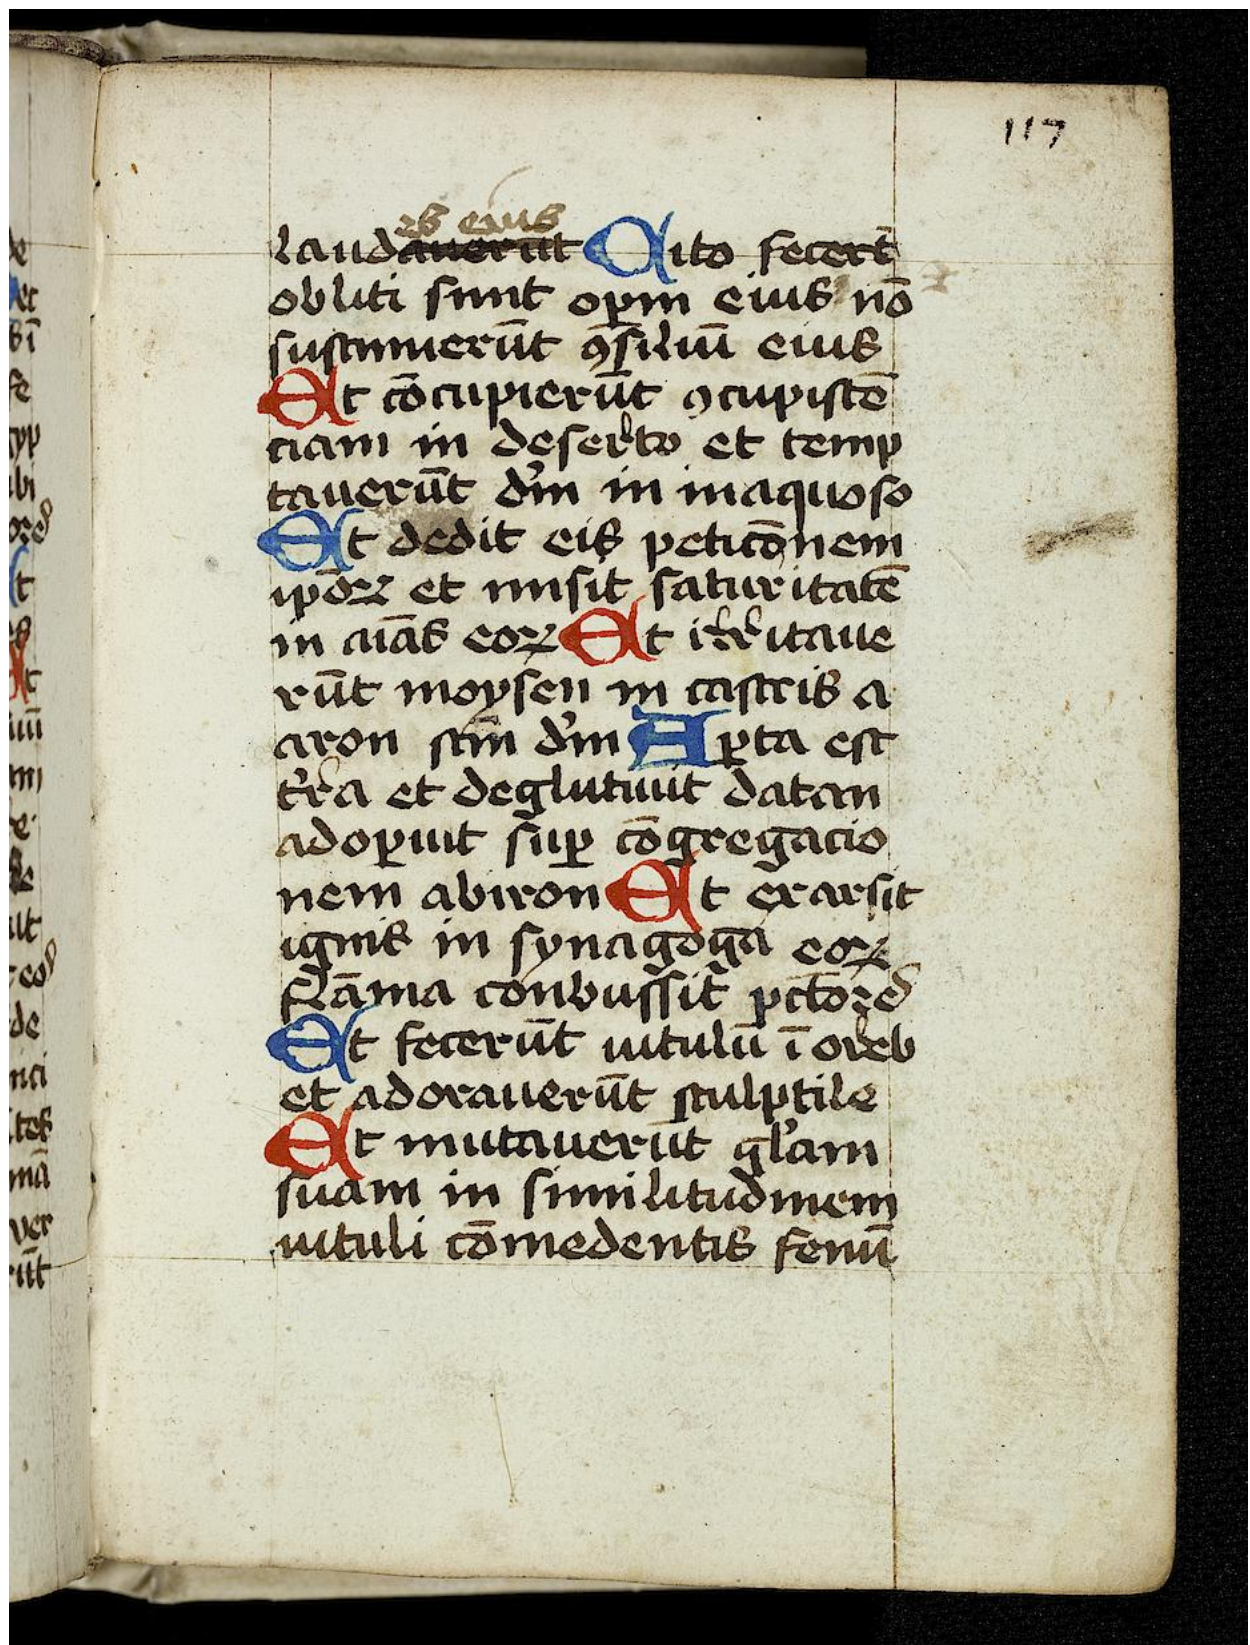 117
es eius
laudauerūt Cito fecer̄t
obliti sunt oꝑm eius nō
sustinuerūt ꝯsiliū eius
Et cōcupierūt ꝯcupistē
ciam in deserto et temp
tauerūt dn̄m in inaquoso
Et dedit eis peticōnem
ip̄oꝝ et misit saturitatē
in aīas eoꝝ Et irritaue
rūt moysen in castris a
aron scm̄ dn̄m Aꝑta est
tr̄ra et deglutiuit datan
adoꝑuit suꝑ cōgregacio
nem abiron Et exarsit
ignis in synagoga eoꝝ
flāma conbussit pctōres
Et fecerūt uitulū ī oreb
et adorauerūt sculptile
Et mutauerūt gl̄am
suam in similitudinem
uituli cōmedentis fenū